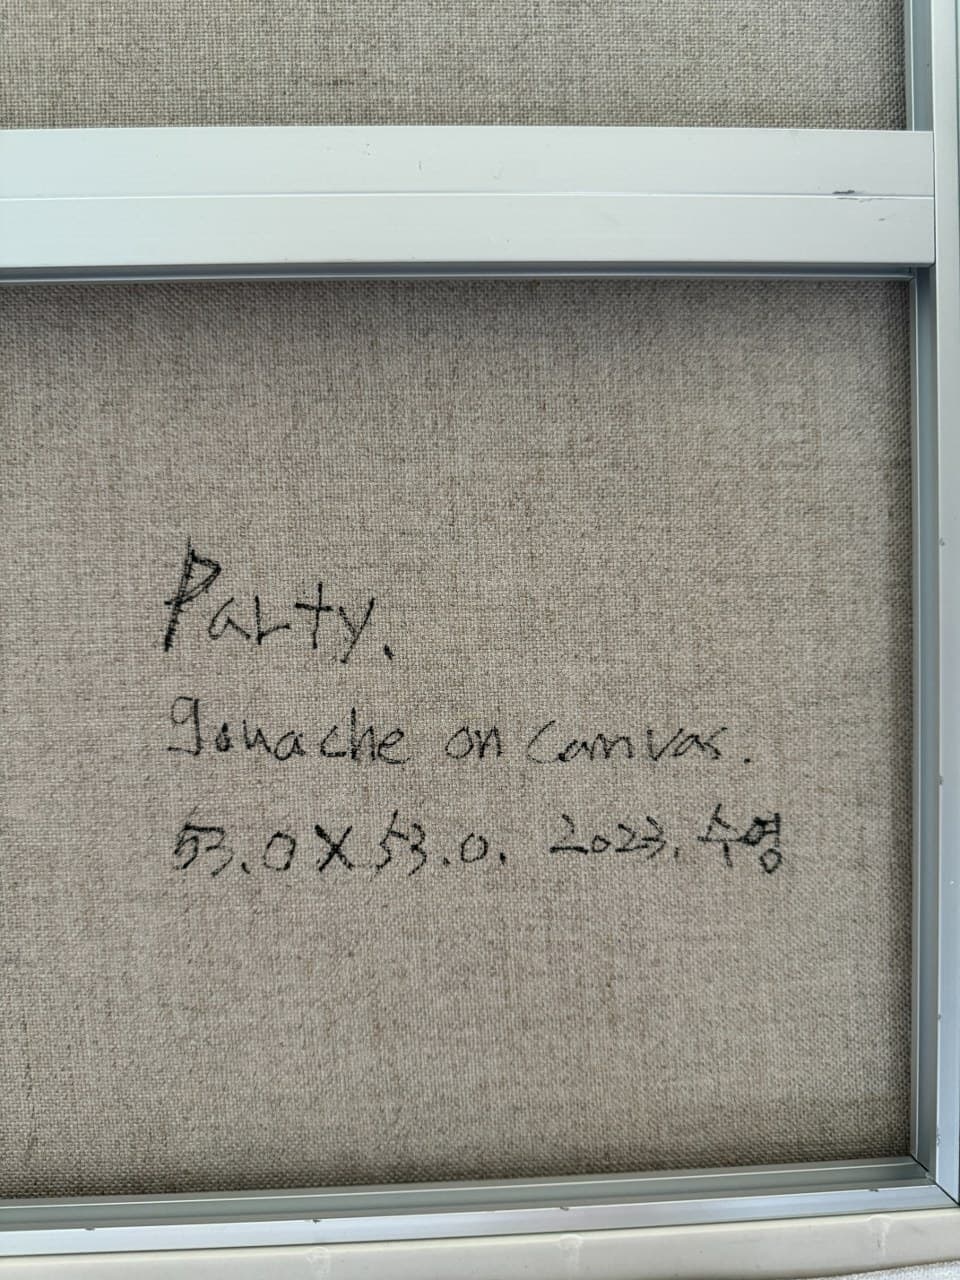 Party.
gouache on canvas.
53.0 X 53.0. 2023. 수영